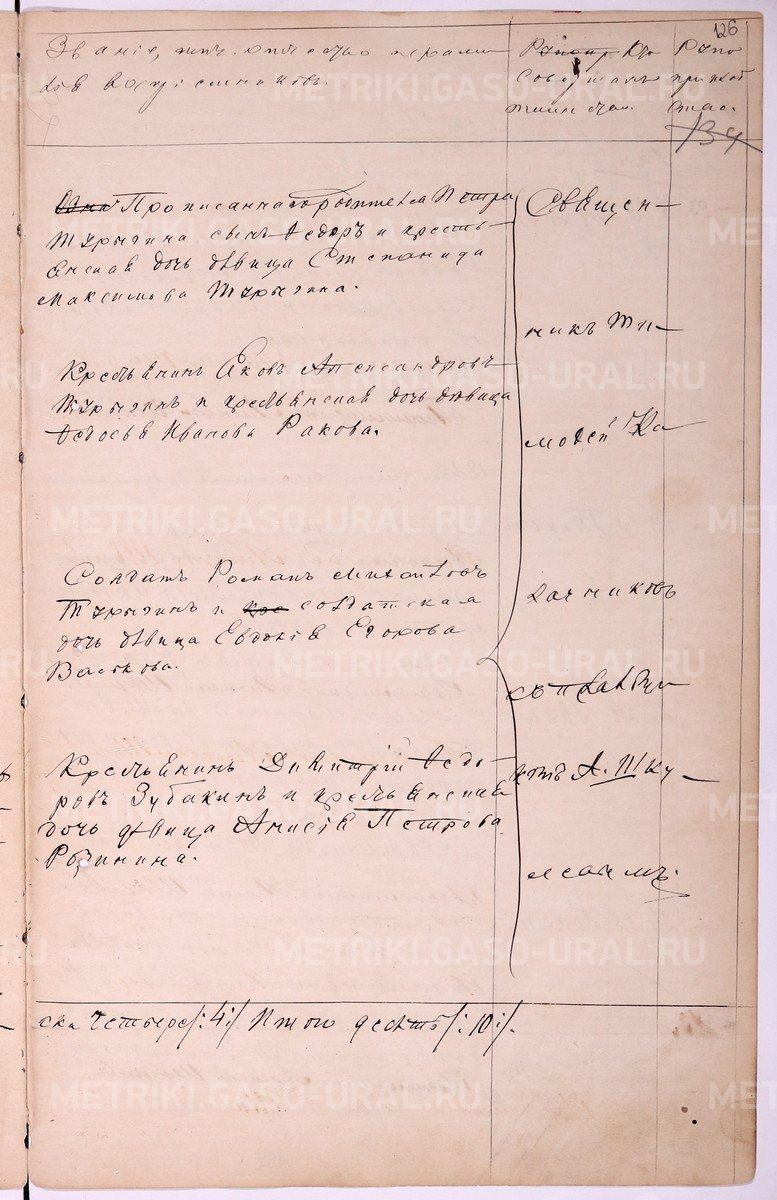 126
Званіе, имя, отчество и фами-
лія воспріемниковъ.
Кто
Совершалъ
таинство.
Руко
прикладс
тво.
134
Прописаннаго родителя Петра
Турыгина сынъ Ѳедоръ и кресть-
янская дочь дѣвица Степанида
Максимова Турыгина.
Крестьянинъ Яковъ Александровъ
Турыгинъ и крестьянская дочь дѣвица
Ѳедосья Иванова Ракова.
Солдатъ Романъ Михаиловъ
Турыгинъ и солдатская
дочь дѣвица Евдокія Егорова
Васькова.
Крестьянинъ Димитрій Ѳедо-
ровъ Зубакинъ и крестьянская
дочь дѣвица Анисія Петрова
Рязинина.
Священ-
никъ Ти-
моѳей Ка
качниковъ
съ псалом
А. Шку-
ска четыре /:4:/ Итого десять /:10:/.
METRIKI.GASO-URAL.RU